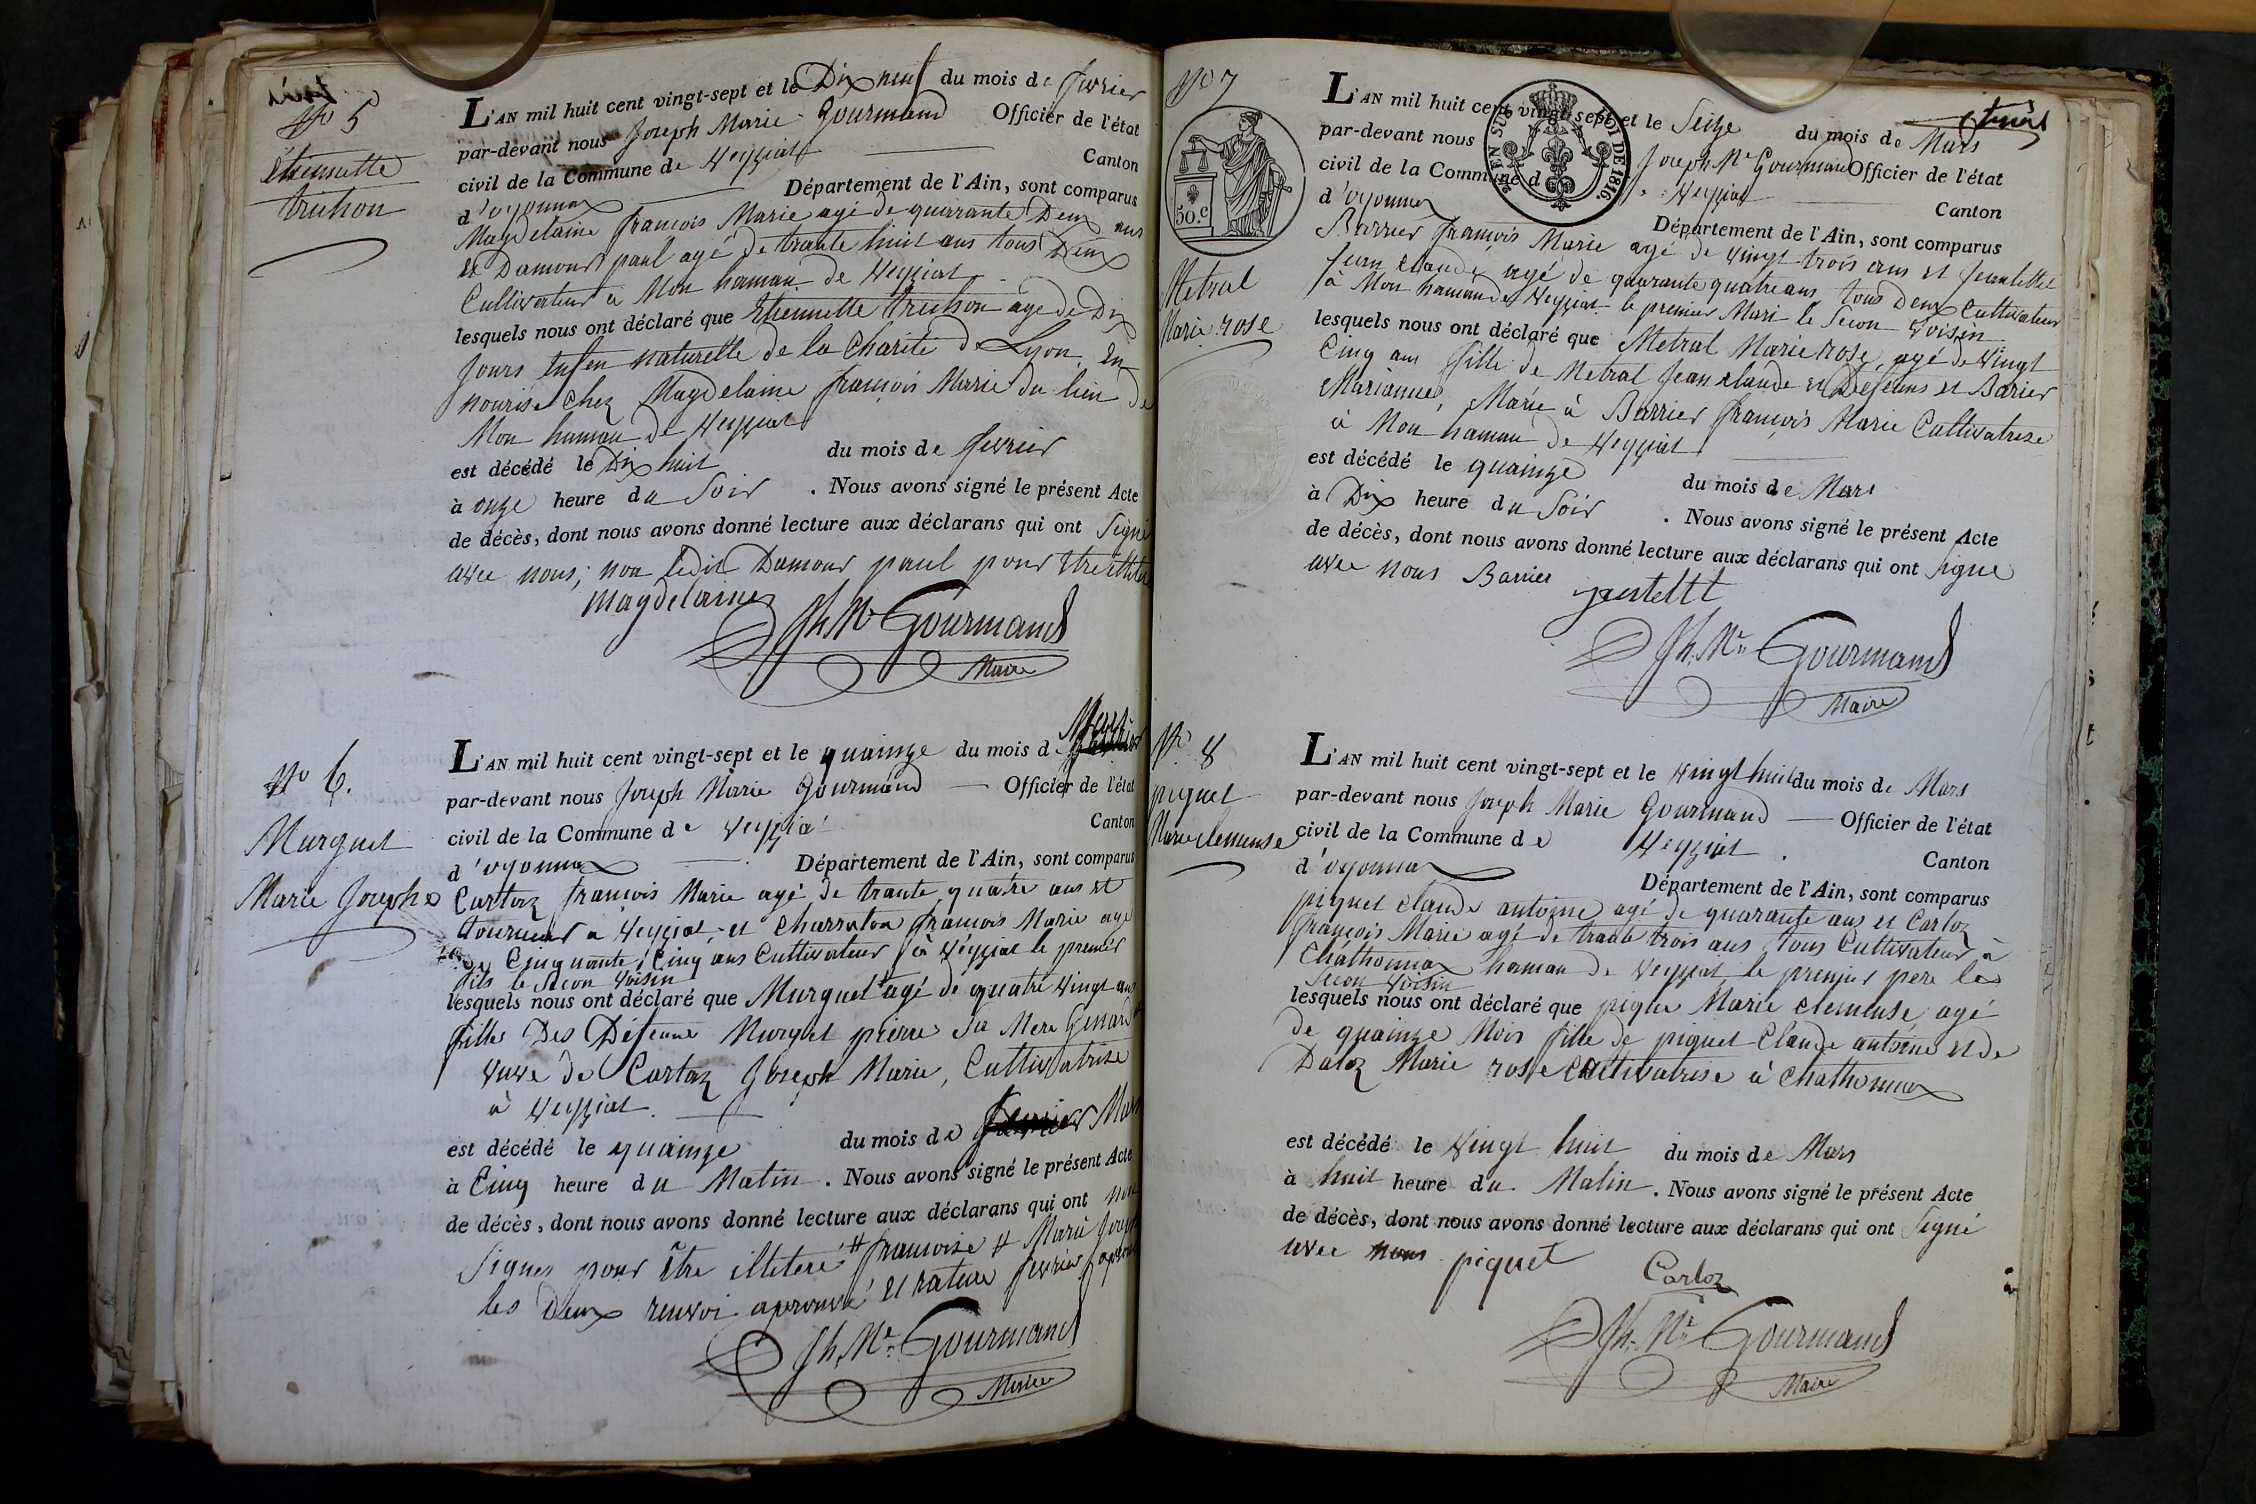 huit
No 5
Etiennette
truchon
L'AN mil huit cent vingt-sept et le Dix neuf du mois de fevrier
par-devant nous Joseph Marie Gourmand Officier de l'état
civil de la Commune de Veyziat Canton
d'oyonnax Département de l'Ain, sont comparus
Magdelaine françois Marie agé de quarrante Deux ans
et Damour paul agé de trante huit ans tous Deux
Cultivateur à Mon haman de Veyziat
lesquels nous ont déclaré que Etiennette truchon age de Dix
Jours enfen naturelle de la Charité de Lyon, en
nourise chez Magdelaine françois Marie du lieu de
Mon haman de Veyziat
est décédé le Dix huit du mois de fevrier
à onze heure du Soir . Nous avons signé le présent Acte
de décès, dont nous avons donné lecture aux déclarans qui ont Signé
avec nous; non ledit Damour paul pour etre
Magdelaine
Jh. Mie Gourmand
Maire
No 6.
Murguet
Marie Josephe
L'AN mil huit cent vingt-sept et le quainze du mois d Mars
par-devant nous Joseph Marie Gourmand Officier de l'état
civil de la Commune de Veyziat Canton
d'oyonnax Département de l'Ain, sont comparus
Cartoz françois Marie agé de trante quatre ans et
tourneur a Veyziat, et Charraton françois Marie agé
de Cinquante Cinq ans Cultivateur à Veyziat le premier
fils le Secon Voisin
lesquels nous ont déclaré que Murguet agé de quatre vingt ans
fille Des Défeunt Murguet pierre Sa Mere
veuve de Cartoz Joseph Marie, Cultivatrise
à Veyziat.
est décédé le quainze du mois de fevrier Mars
à Cinq heure du Matin . Nous avons signé le présent Acte
de décès, dont nous avons donné lecture aux déclarans qui ont non
Signer pour être illiteré # francoise # Marie Joseph
les Deux renvoi aprouvé et rature fevrier
Jh. Mie Gourmand
Maire
No 7
50.c
Metral
Marie rose
L'AN mil huit cent vingt-sept et le Seize du mois de Mars
par-devant nous Joseph Mie Gourmand Officier de l'état
civil de la Commune de Veyziat Canton
d'oyonnax Département de l'Ain, sont comparus
Barrier françois Marie agé de vingt trois ans et Jeantellet
Jean claude agé de quarante quatre ans tous Deux Cultivateur
à Mon haman de Veyziat le premier Mari le Secon Voisin
lesquels nous ont déclaré que Metral Marie rose, agé de vingt
Cinq ans fille de Metral Jean claude et Defeuns et Barier
Marianne, Marie à Barrier françois Marie Cultivatrise
à Mon haman de Veyziat
est décédé le quainze du mois de Mars
à Dix heure du Soir . Nous avons signé le présent Acte
de décès, dont nous avons donné lecture aux déclarans qui ont Signé
avec nous Barrier
Jh. Mie Gourmand
Maire
No 8
piquet
Marie clemense
L'AN mil huit cent vingt-sept et le vingt huit du mois de Mars
par-devant nous Joseph Marie Gourmand Officier de l'état
civil de la Commune de Veyziat . Canton
d'oyonnax Département de l'Ain, sont comparus
piquet claude antoine agé de quarante ans et Cartoz
françois Marie agé de trante trois ans tous Cultivateur à
Chathonnax haman de Veyziat le premier pere le
Secon Voisin
lesquels nous ont déclaré que pique Marie clemense, agé
de quainze Mois fille de piquet Claude antoine et de
Daloz Marie rose Cultivatrise à Chathonnax
est décédé le vingt huit du mois de Mars
à huit heure du Matin . Nous avons signé le présent Acte
de décès, dont nous avons donné lecture aux déclarans qui ont Signé
avec nous piquet
Cartoz
Jh. Mie Gourmand
Maire